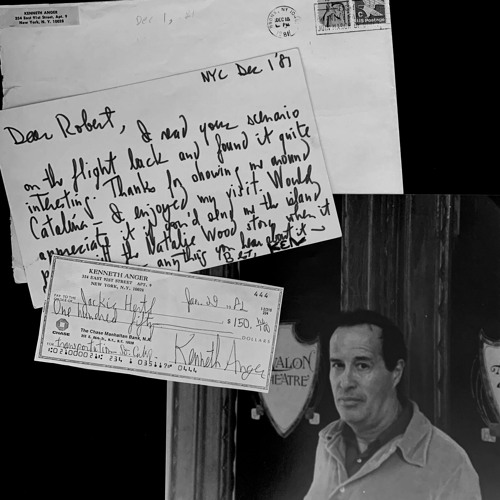 KENNETH ANGER
354 East 91st Street, Apt. 9
New York, N. Y. 10028
Dec 1, 81
DEC
PM
US Postage
NYC Dec 1 '81
Dear Robert, I read your scenario
on the flight back and found it quite
interesting. Thanks for showing me around
Catalina - I enjoyed my visit. Would
appreciate it if you'd send me the island
the Natalie Wood story when it
anything you hear about it -
Best, KEN
KENNETH ANGER
354 EAST 91ST STREET APT. 9
NEW YORK, N.Y. 10028
444
Jan 29 81
PAY TO THE
ORDER OF
Jackie
$ 150.
One hundred fifty
DOLLARS
CHASE
The Chase Manhattan Bank, N.A.
FOR
transportation So. Calif.
Kenneth Anger
0444
AVALON
THEATRE